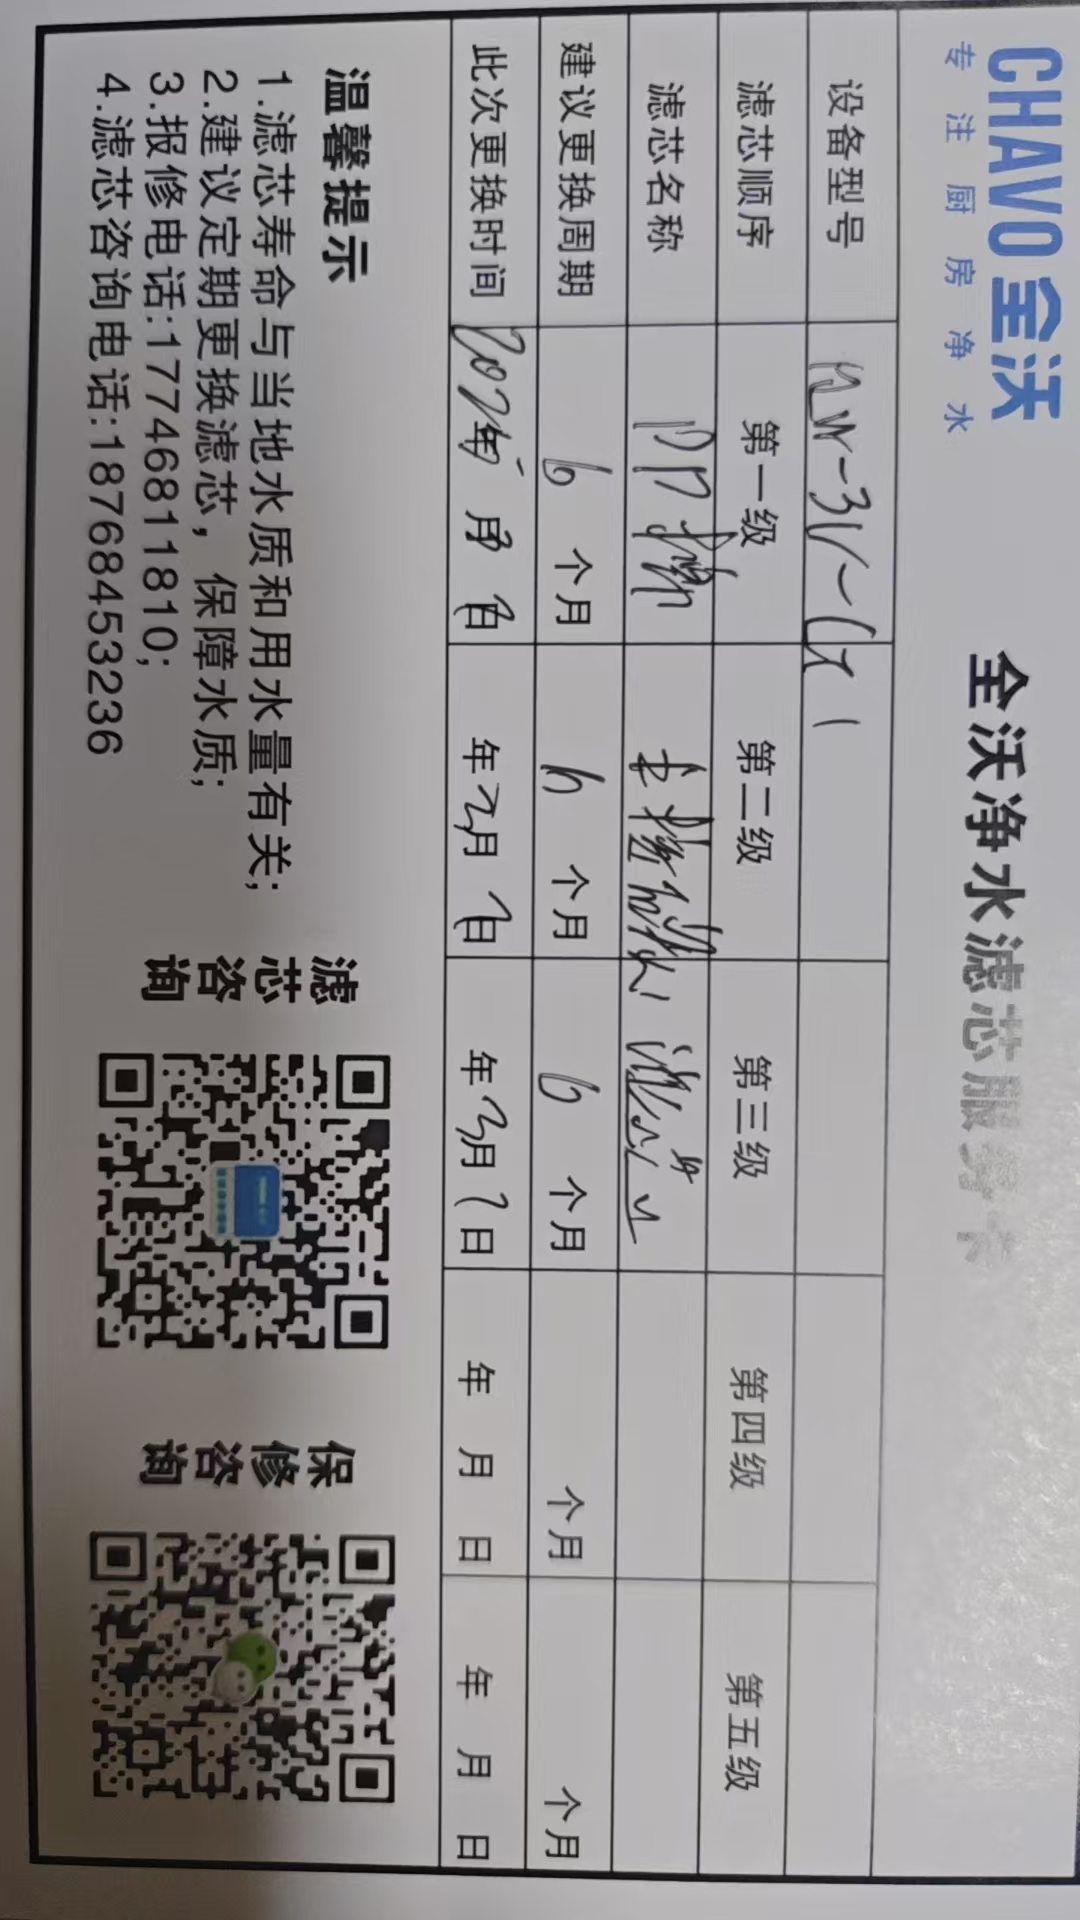 CHAVO全沃
专注厨房净水
全沃净水滤芯服务卡
设备型号
滤芯顺序 第一级 第二级 第三级 第四级 第五级
滤芯名称 PP棉
建议更换周期 6 个月 6 个月 6 个月 个月 个月
此次更换时间 年 月 日 年 月 日 年 月 日 年 月 日 年 月 日
温馨提示
1.滤芯寿命与当地水质和用水量有关;
2.建议定期更换滤芯，保障水质;
3.报修电话:17746811810;
4.滤芯咨询电话:18768453236
滤芯咨询
保修咨询